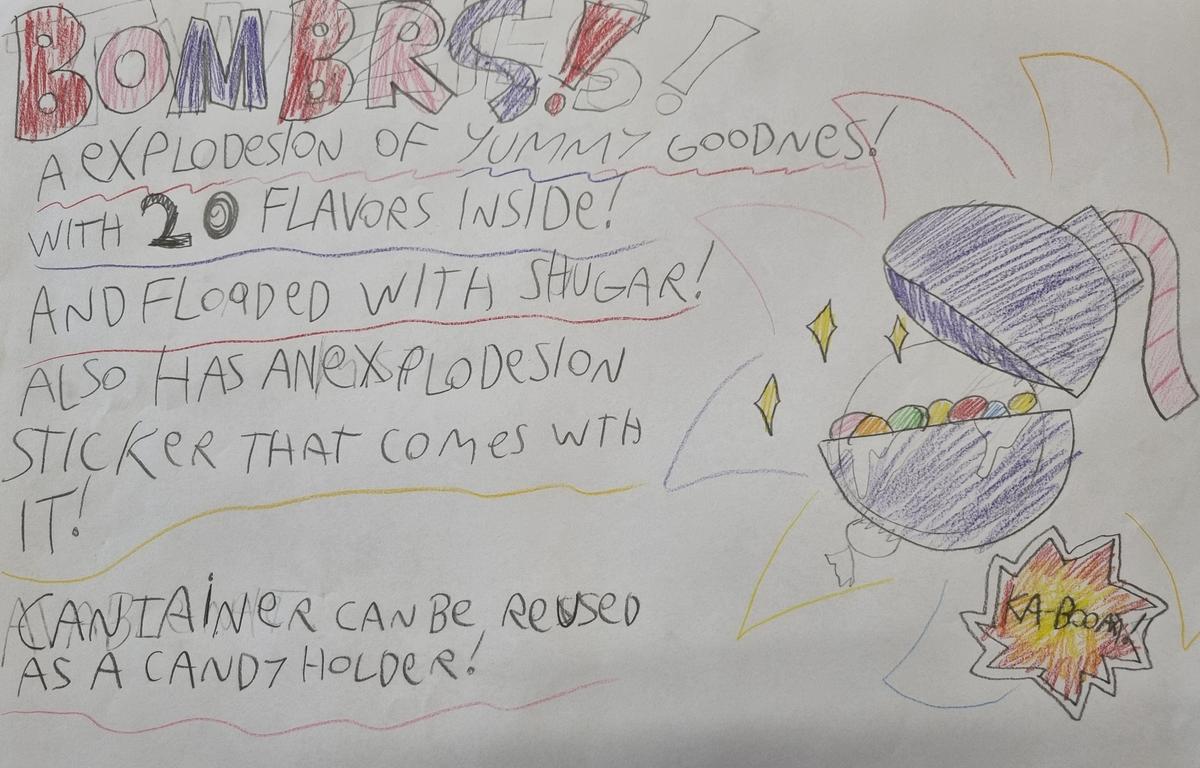 BOMBRS!!
A eXPLODesION OF YUMMY GOODNES!
WITH 20 FLAVORS INSIDe!
AND FLOaDeD WITH SHUGAR!
ALSO HAS AN eXPLODesION
STICKeR THAT COMes WTH
IT!
CANTAiNeR CAN Be ReUSeD
AS A CANDY HOLDeR!
KA-BOOM!